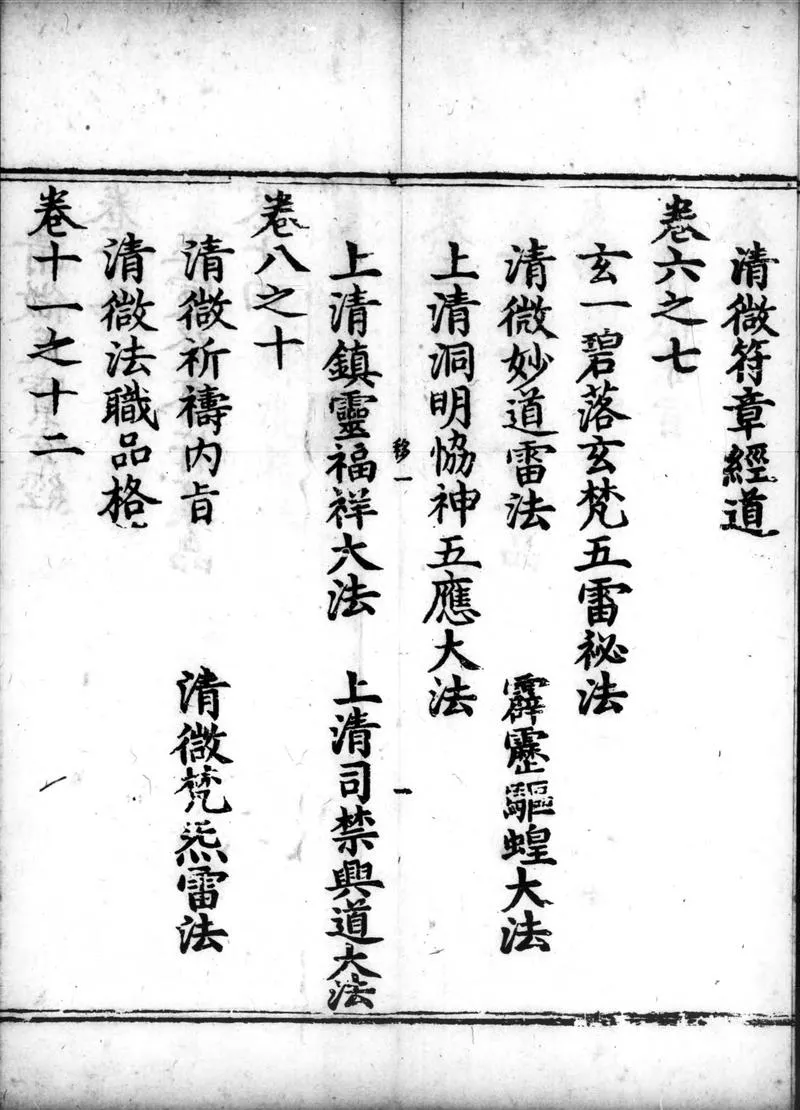 清微符章經道
卷六之七
玄一碧落玄梵五雷祕法
清微妙道雷法　霹靂驅蝗大法
上清洞明恊神五應大法
移一　一
上清鎮靈福祥大法　上清司禁興道大法
卷八之十
清微祈禱内旨　清微梵炁雷法
清微法職品格
卷十一之十二